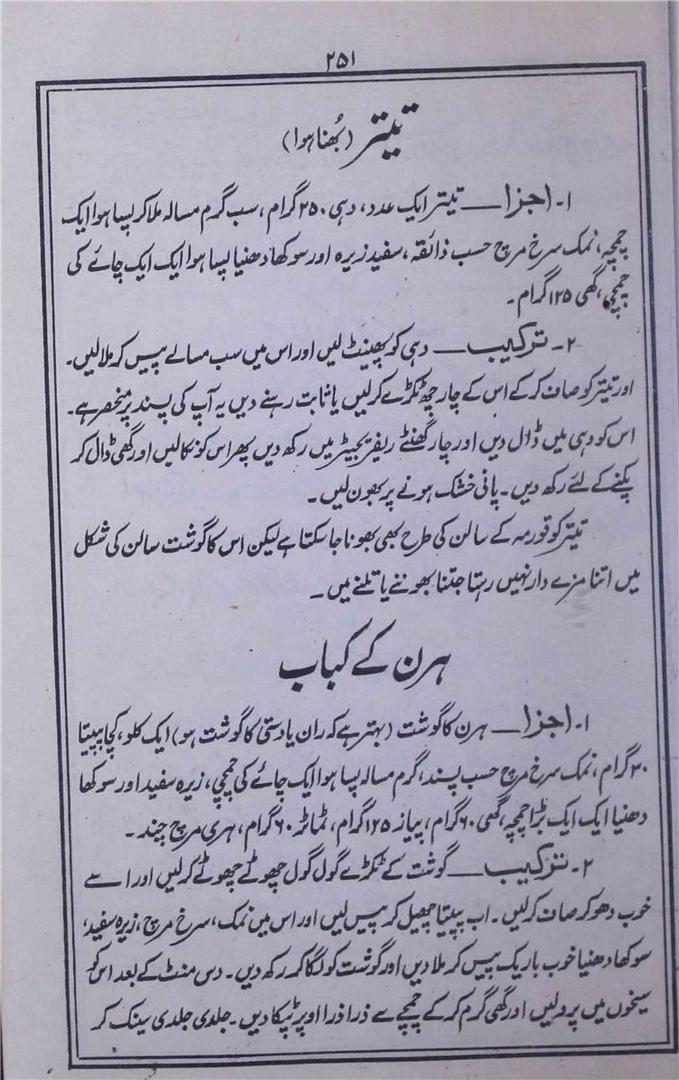 ۲۵۱
تیتر (بُھنا ہوا)
۱۔ اجزا ـــ تیتر ایک عدد، دہی ۲۵۰ گرام، سب گرم مسالہ ملا کر پسا ہوا ایک
چمچہ، نمک سرخ مرچ حسب ذائقہ، سفید زیرہ اور سوکھا دھنیا پسا ہوا ایک ایک چائے کی
چمچی، گھی ۱۲۵ گرام۔
۲۔ ترکیب ـــ دہی کو پھینٹ لیں اور اس میں سب مسالے پیس کر ملا لیں۔
اور تیتر کو صاف کر کے اس کے چار چھ ٹکڑے کر لیں یا ثابت رہنے دیں یہ آپ کی پسند پر منحصر ہے۔
اس کو دہی میں ڈال دیں اور چار گھنٹے ریفریجیٹر میں رکھ دیں پھر اس کو نکالیں اور گھی ڈال کر
پکنے کے لئے رکھ دیں۔ پانی خشک ہونے پر بھون لیں۔
تیتر کو قورمہ کے سالن کی طرح بھی بھونا جا سکتا ہے لیکن اس کا گوشت سالن کی شکل
میں اتنا مزے دار نہیں رہتا جتنا بھوننے یا تلنے میں۔
ہرن کے کباب
۱۔ اجزا ـــ ہرن کا گوشت (بہتر ہے کہ ران یا دستی کا گوشت ہو) ایک کلو، کچا پپیتا
۳۰ گرام، نمک سرخ مرچ حسب پسند، گرم مسالہ پسا ہوا ایک چائے کی چمچی، زیرہ سفید اور سوکھا
دھنیا ایک ایک بڑا چمچہ، گھی ۶۰ گرام، پیاز ۱۲۵ گرام، ٹماٹر ۶۰ گرام، ہری مرچ چند۔
۲۔ ترکیب ـــ گوشت کے ٹکڑے گول گول چھوٹے چھوٹے کر لیں اور اسے
خوب دھو کر صاف کر لیں۔ اب پپیتا چھیل کر پیس لیں اور اس میں نمک، سرخ مرچ، زیرہ سفید،
سوکھا دھنیا خوب باریک پیس کر ملا دیں اور گوشت کو لگا کر رکھ دیں۔ دس منٹ کے بعد اس کو
سیخوں میں پرو لیں اور گھی گرم کر کے چمچے سے ذرا ذرا اوپر ٹپکا دیں۔ جلدی جلدی سینک کر